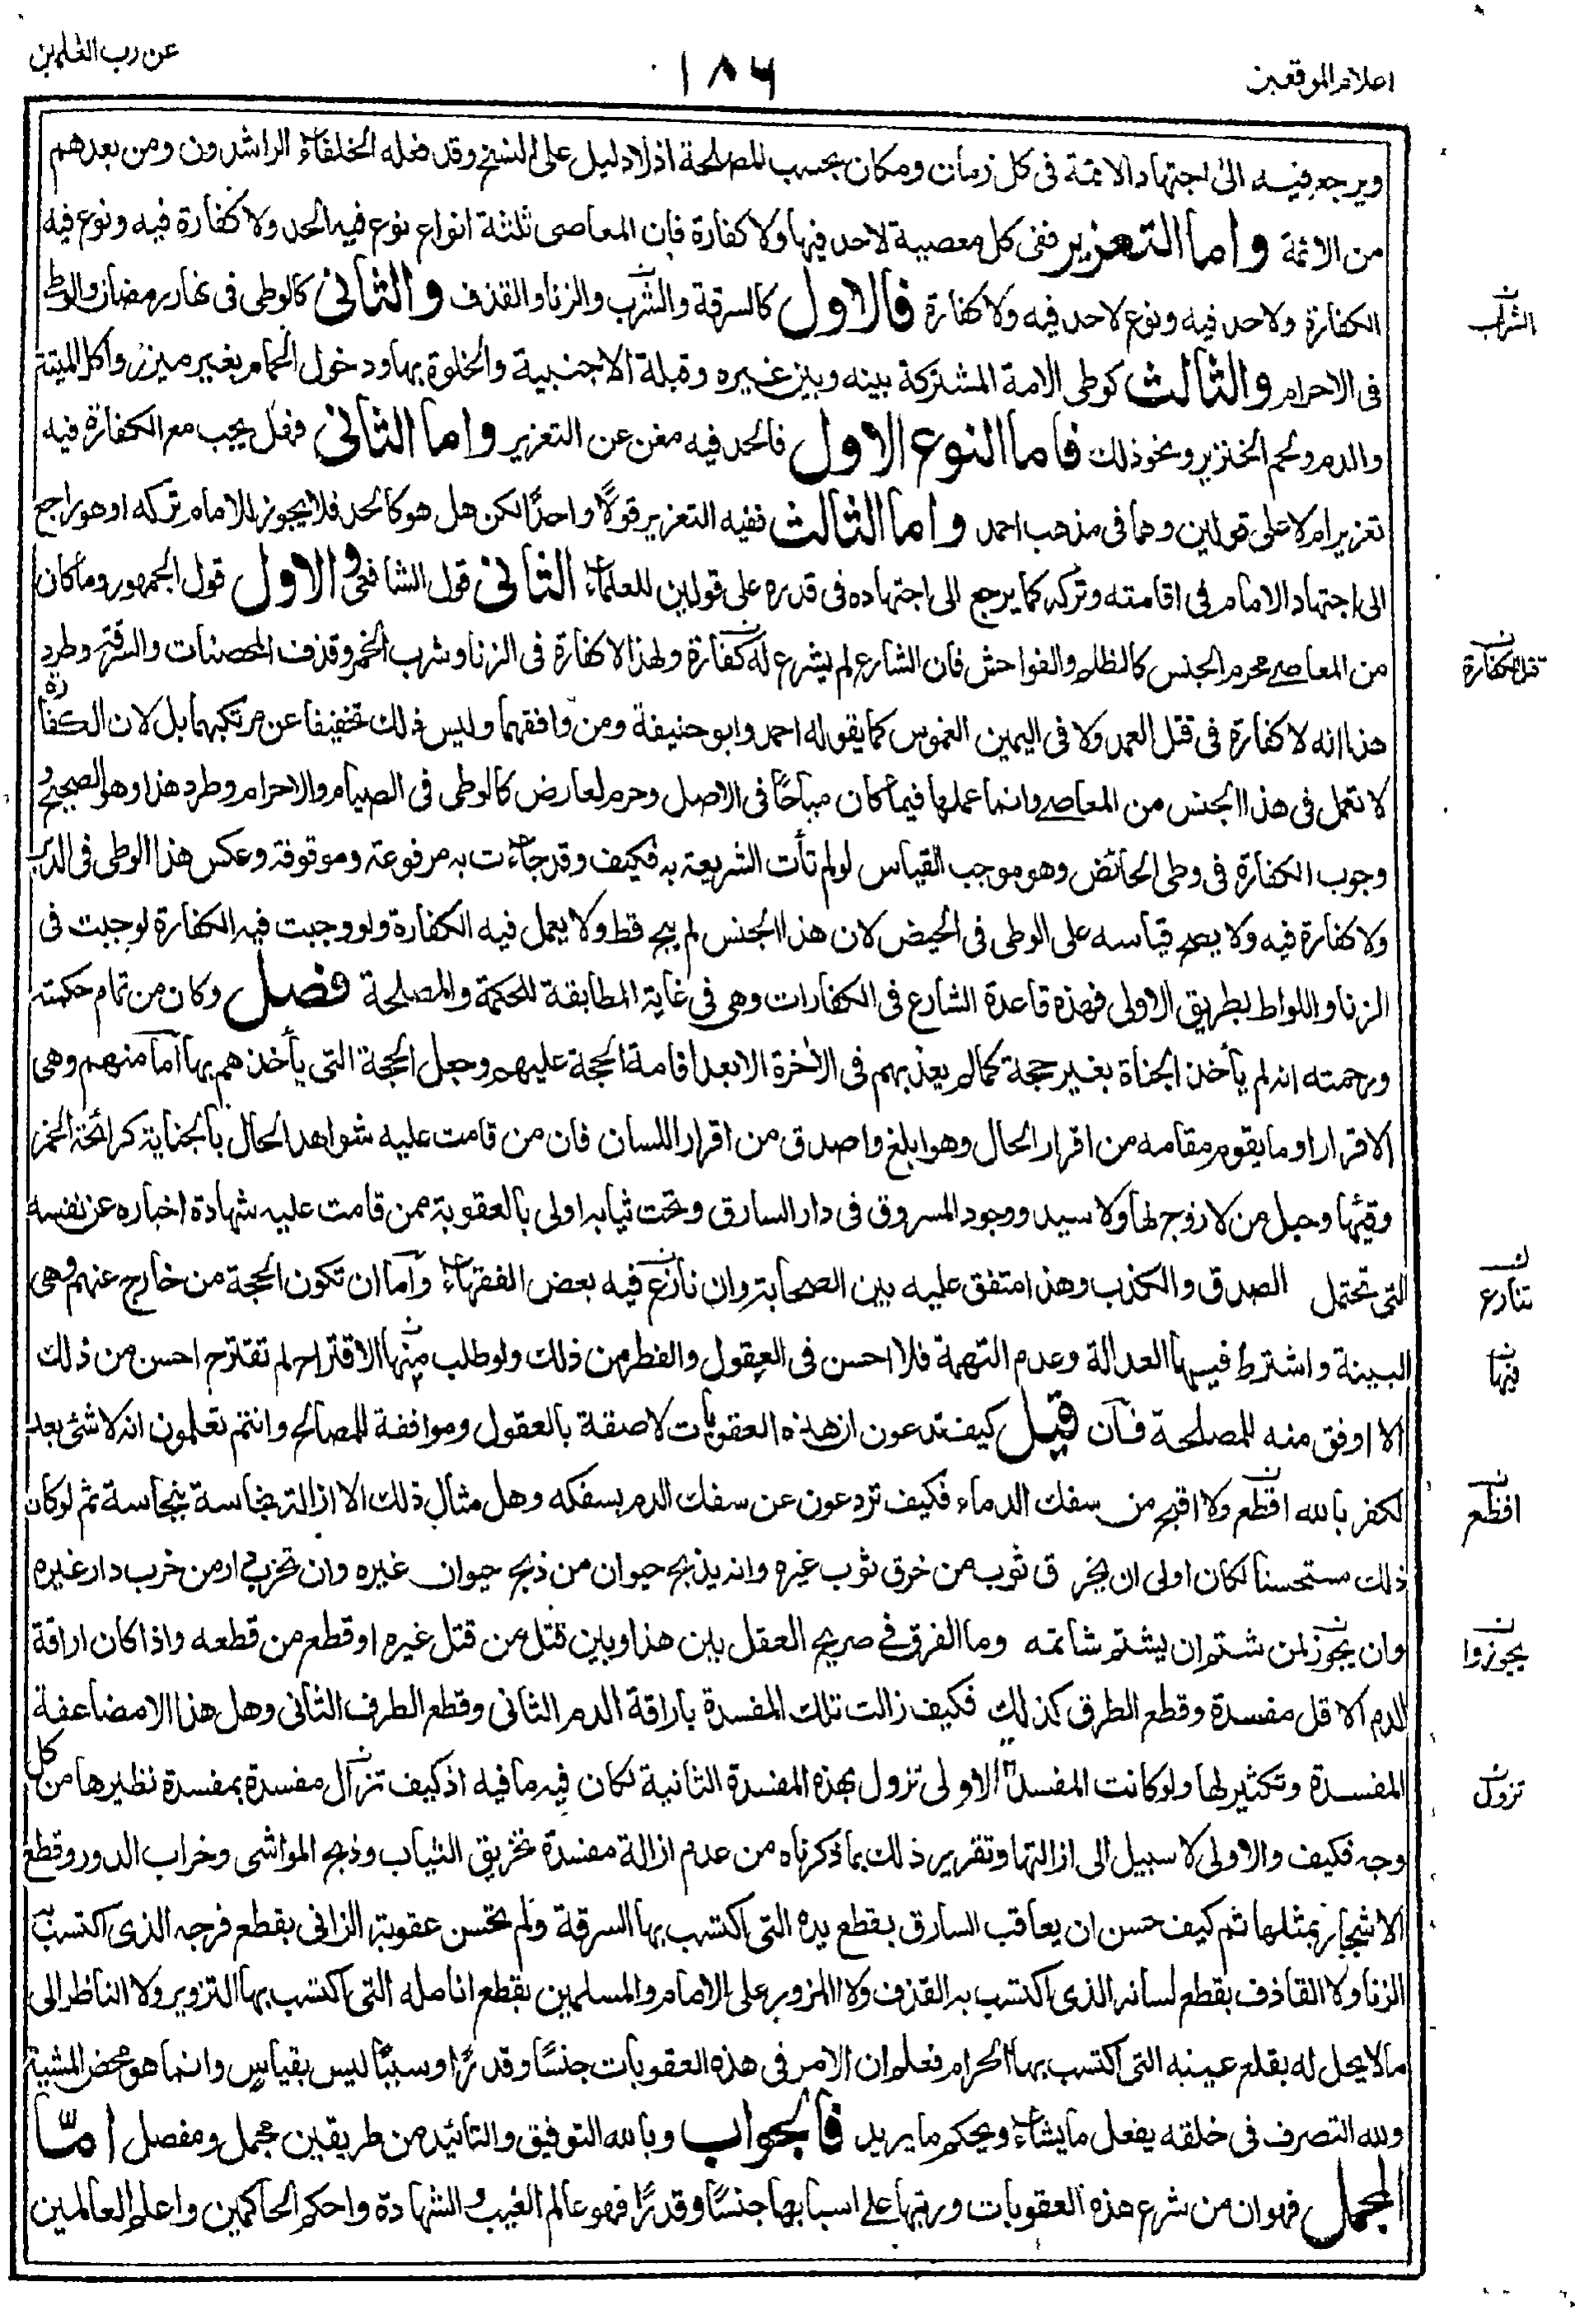 اعلام الموقعين
١٨٦
عن رب العلمين
ويرجع فيه الى اجتهاد الائمة فى كل زمان ومكان بحسب المصلحة اذ لا دليل على النسخ وقد فعله الخلفاء الراشدون ومن بعدهم
من الائمة واما التعزير ففى كل معصية لا حد فيها ولا كفارة فان المعاصى ثلثة انواع نوع فيه الحد ولا كفارة فيه ونوع فيه
الكفارة ولا حد فيه ونوع لا حد فيه ولا كفارة فالاول كالسرقة والشرب والزنا والقذف والثانى كالوطى فى نهار رمضان والوطى
الشراب
فى الاحرام والثالث كوطى الامة المشتركة بينه وبين غيره وقبلة الاجنبية والخلوة بها ودخول الحمام بغير ميزر واكل الميتة
والدم ولحم الخنزير ونحو ذلك فاما النوع الاول فالحد فيه مغن عن التعزير واما الثانى فهل يجب مع الكفارة فيه
تعزير ام لا على قولين وهما فى مذهب احمد واما الثالث ففيه التعزير قولًا واحدًا لكن هل هو كالحد فلا يجوز للامام تركه او هو راجع
الى اجتهاد الامام فى اقامته وتركه كما يرجع الى اجتهاده فى قدره على قولين للعلماء الثانى قول الشافعى والاول قول الجمهور وما كان
من المعاصى محرم الجنس كالظلم والفواحش فان الشارع لم يشرع له كفارة ولهذا لا كفارة فى الزنا وشرب الخمر وقذف المحصنات والسرقة وطرد
هذا انه لا كفارة فى قتل العمد ولا فى اليمين الغموس كما يقوله احمد وابو حنيفة ومن وافقهما وليس ذلك تخفيفا عن مرتكبهما بل لان الكفارة
لا تعمل فى هذا الجنس من المعاصى وانما عملها فيما كان مباحًا فى الاصل وحرم لعارض كالوطى فى الصيام والاحرام وطرد هذا وهو الصحيح
وجوب الكفارة فى وطى الحائض وهو موجب القياس لو لم تأت الشريعة به فكيف وقد جاءت به مرفوعة وموقوفة وعكس هذا الوطى فى الدبر
ولا كفارة فيه ولا يصح قياسه على الوطى فى الحيض لان هذا الجنس لم يبح قط ولا يعمل فيه الكفارة ولو وجبت فيه الكفارة لوجبت فى
الزنا واللواط بطريق الاولى فهذه قاعدة الشارع فى الكفارات وهى فى غاية المطابقة للحكمة والمصلحة فصل وكان من تمام حكمته
ورحمته انه لم يأخذ الجناة بغير حجة كما لم يعذبهم فى الاخرة الا بعد اقامة الحجة عليهم وجعل الحجة التى يأخذهم بها اما منهم وهى
الاقرار او ما يقوم مقامه من اقرار الحال وهو ابلغ واصدق من اقرار اللسان فان من قامت عليه شواهد الحال بالجناية كرائحة الخمر
وقيئها وحبل من لا زوج لها ولا سيد ووجود المسروق فى دار السارق وتحت ثيابه اولى بالعقوبة ممن قامت عليه شهادة اخباره عن نفسه
التى تحتمل الصدق والكذب وهذا متفق عليه بين الصحابة وان نازع فيه بعض الفقهاء واما ان تكون الحجة من خارج عنهم وهى
تنازع
البينة واشترط فيها العدالة وعدم التهمة فلا احسن فى العقول والفطر من ذلك ولو طلب منها الاقتراح لم تقترح احسن من ذلك
فيها
الا اوفق منه للمصلحة فان قيل كيف تدعون ان هذه العقوبات لاصقة بالعقول وموافقة للمصالح وانتم تعلمون انه لا شئ بعد
لكفر بالله اقطع ولا اقبح من سفك الدماء فكيف تردعون عن سفك الدم بسفكه وهل مثال ذلك الا ازالة نجاسة بنجاسة ثم لو كان
افظع
ذلك مستحسنا لكان اولى ان يخرق ثوب من خرق ثوب غيره وانه يذبح حيوان من ذبح حيوان غيره وان تخرب دار من خرب دار غيره
وان يجوز لمن شتم ان يشتم شاتمه وما الفرق فى صريح العقل بين هذا وبين قتل من قتل غيره او قطع من قطعه واذا كان اراقة
يجوزوا
الدم الاقل مفسدة وقطع الطرق كذلك فكيف زالت تلك المفسدة باراقة الدم الثانى وقطع الطرف الثانى وهل هذا الا مضاعفة
المفسدة وتكثير لها ولو كانت المفسدة الاولى تزول بهذه المفسدة الثانية لكان فيه ما فيه اذ كيف تزال مفسدة بمفسدة نظيرها من كل
تزول
وجه فكيف والاولى لا سبيل الى ازالتها وتقرير ذلك بما ذكرناه من عدم ازالة مفسدة تخريق الثياب وذبح المواشى وخراب الدور وقطع
الاشجار بمثلها ثم كيف حسن ان يعاقب السارق بقطع يده التى اكتسب بها السرقة ولم تحسن عقوبة الزانى بقطع فرجه الذى اكتسب به
الزنا ولا القاذف بقطع لسانه الذى اكتسب به القذف ولا المزور على الامام والمسلمين بقطع انامله التى اكتسب بها التزوير ولا الناظر الى
ما لا يحل له بقلع عينه التى اكتسب بها الحرام فعلم ان الامر فى هذه العقوبات جنسًا وقدرًا وسببًا ليس بقياس وانما هو محض المشية
ولله التصرف فى خلقه يفعل ما يشاء ويحكم ما يريد فالجواب وبالله التوفيق والتائيد من طريقين مجمل ومفصل امّا
المجمل فهو ان من شرع هذه العقوبات ورتبها على اسبابها جنسًا وقدرًا فهو عالم الغيب والشهادة واحكم الحاكمين واعلم العالمين